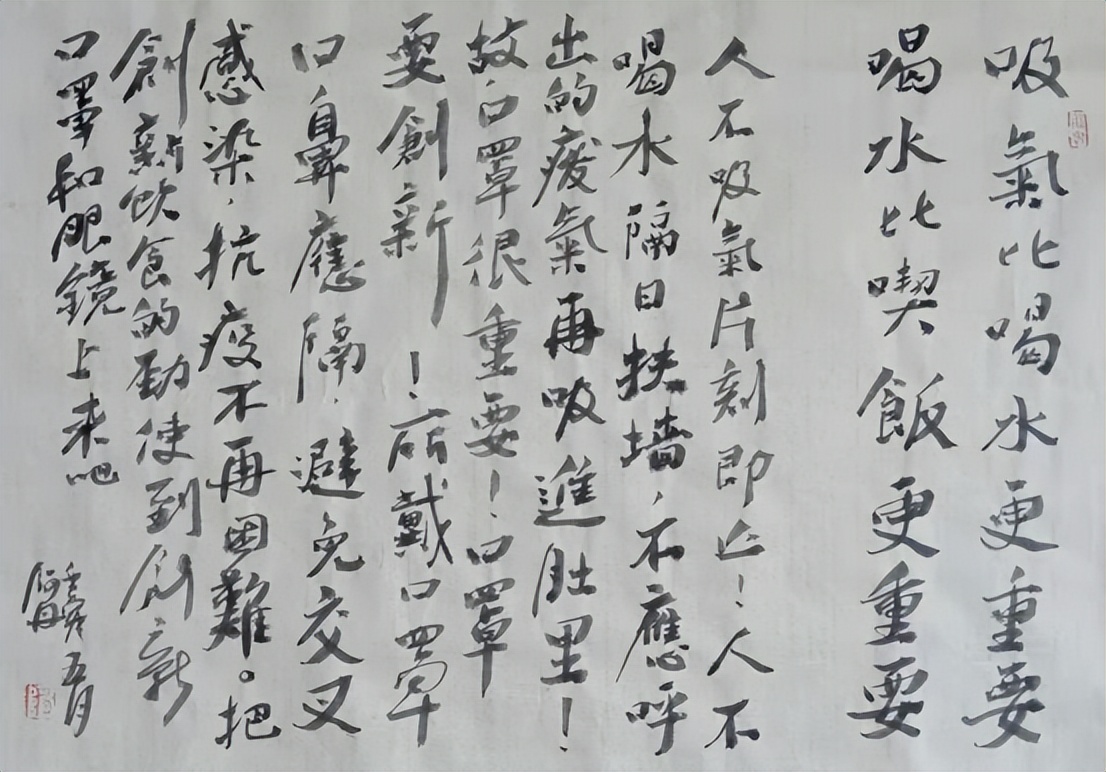 吸氣比喝水更重要
喝水比喫飯更重要
人不吸氣片刻即亡！人不
喝水隔日扶墙，不應呼
出的废氣再吸進肚里！
故口罩很重要！口罩
要創新！所戴口罩
口鼻應隔，避免交叉
感染，抗疫不再困難。把
創新飲食的勁使到創新
口罩和眼鏡上来吧
壬寅五月